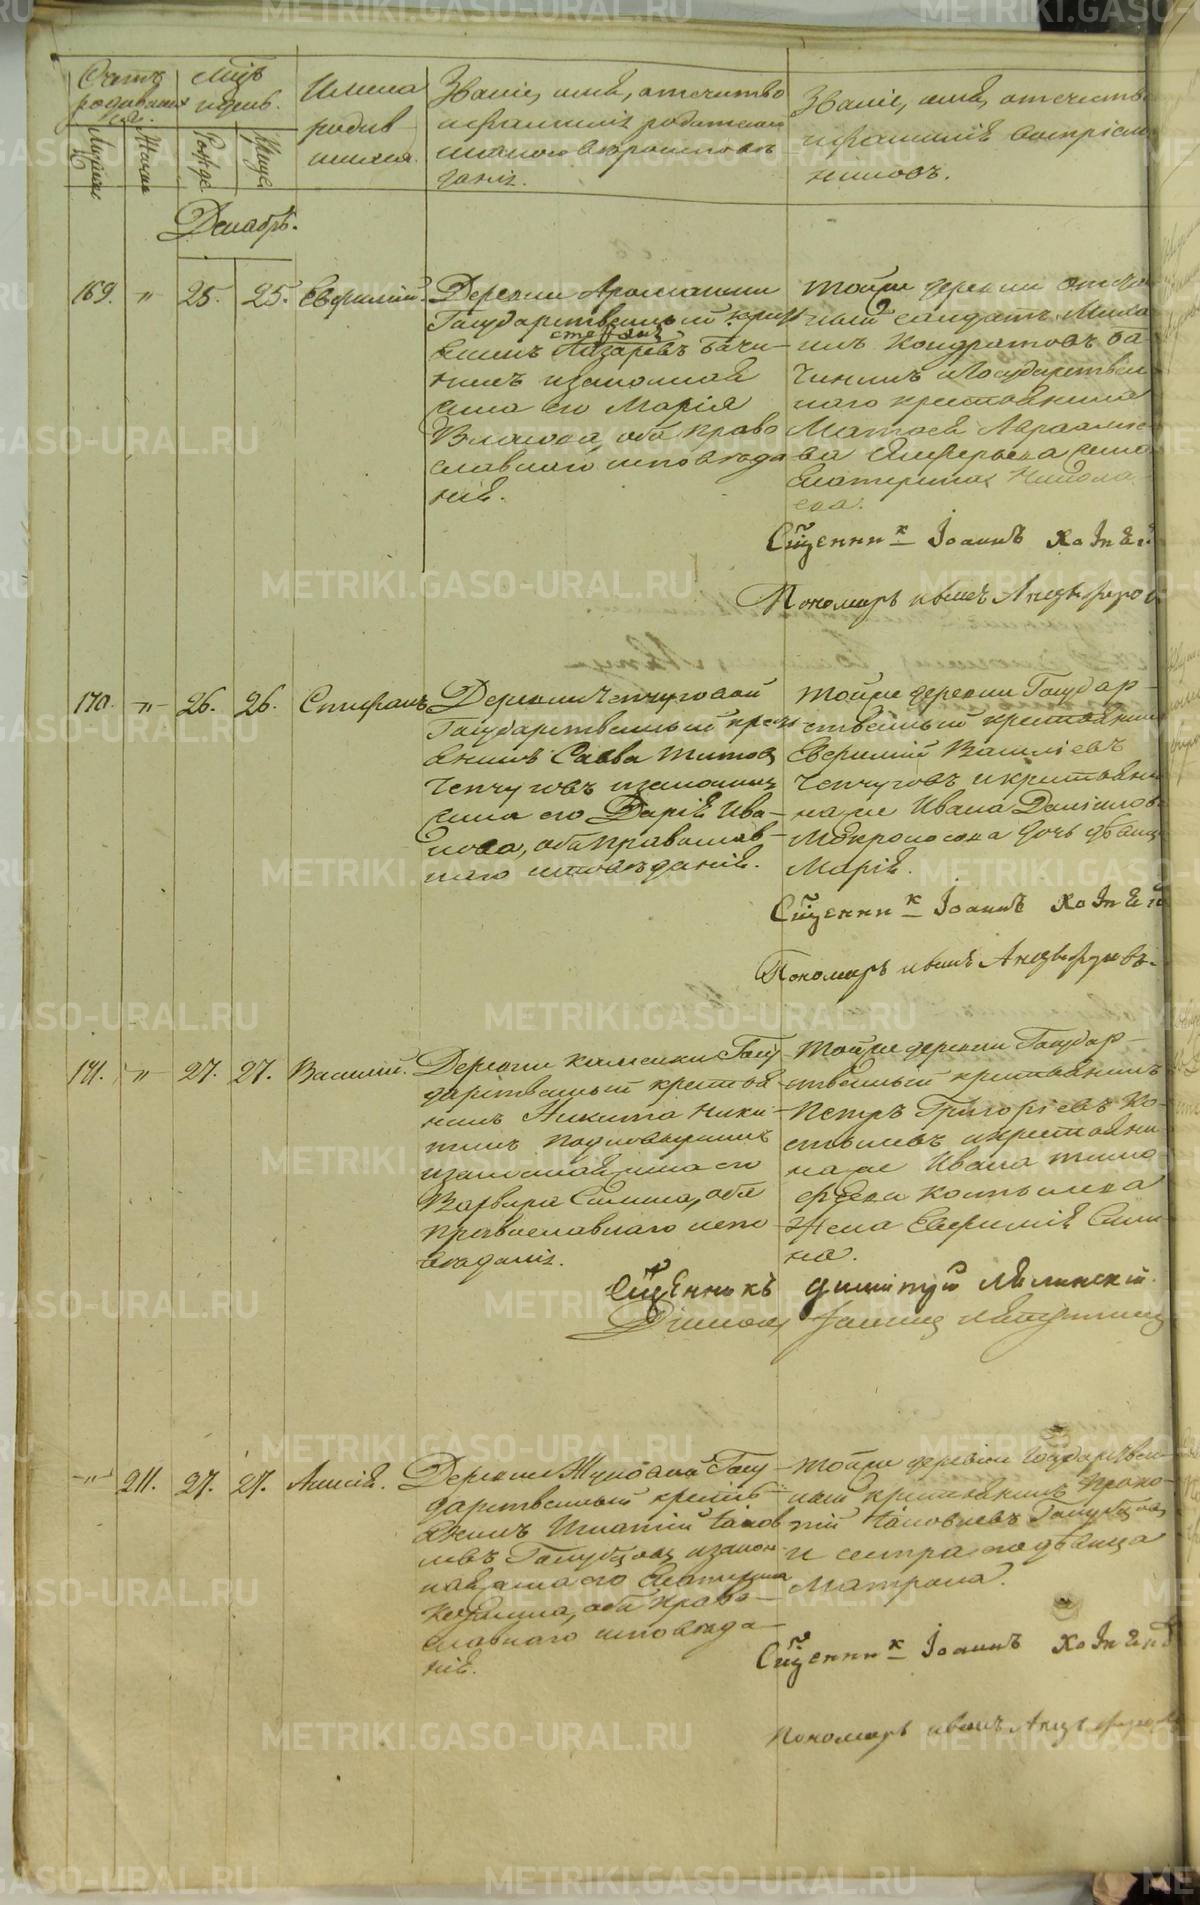 METRIKI.GASO-URAL.RU
Счетъ родившихся.
Мужска
Женска
Мѣсяцъ и день.
Рожде
Креще
Имена
родив
шихся.
Званіе, имя, отечество
и фамилія родителей
и какого вѣроисповѣ
данія.
Званіе, имя, отечеств
и фамилія воспріем
никовъ.
Декабрь.
169. " 25. 25. Евфимій.
Деревни
Государственный крест
янинъ Стефанъ Лазаревъ Бачи-
нинъ и законная
жена его Марія
Власова, оба право
славнаго исповѣда
нія.
Тойже деревни отстав
ный солдатъ Миха
илъ Кондратовъ Ба
чининъ и Государствен
наго крестьянина
Матвея Авраамо
ва Алферьева жена
Екатерина Никола
ева.
Сщенникъ Іоаннъ
Пономарь Иванъ Анцыферов
170. " 26. 26. Стефанъ.
Деревни Чепчуговой
Государственный крест
янинъ Савва Титовъ
Чепчуговъ и законная
жена его Дарія Ива-
нова, оба православ-
наго исповѣданія.
Тойже деревни Государ-
ственный крестьянинъ
Евфимій Василіевъ
Чепчуговъ и крестьяни
на же Ивана Данілов
Мокроносова дочь дѣвиц
Марія.
Сщенникъ Іоаннъ
Пономарь Иванъ Анцыферовъ.
171. " 27. 27. Василій.
Деревни Каменки Госу
дарственный крестья
нинъ Никита Ники-
тинъ Подковыркинъ
и законная жена его
Варвара Силина, оба
православнаго испо
вѣданія.
Тойже деревни Государ-
ственный крестьянинъ
Петръ Григоріевъ Ко-
стылевъ и крестьяни
на же Ивана Тимо
феева Костылева
жена Евфимія Сили
на.
Сщенникъ Димитрій
Діаконъ Іоаннъ
" 211. 27. 27. Анисія.
Деревни Жуковой Госу
дарственный кресть-
янинъ Игнатій Іаков
левъ Голубцовъ и закон
ная жена его Екатерина
, оба право-
славнаго исповѣда-
нія.
Тойже деревни Государствен
ный крестьянинъ Проко
пій Іаковлевъ Голубцовъ
и сестра его дѣвица
Матрона.
Сщенникъ Іоаннъ
Пономарь Иванъ Анцыферовъ